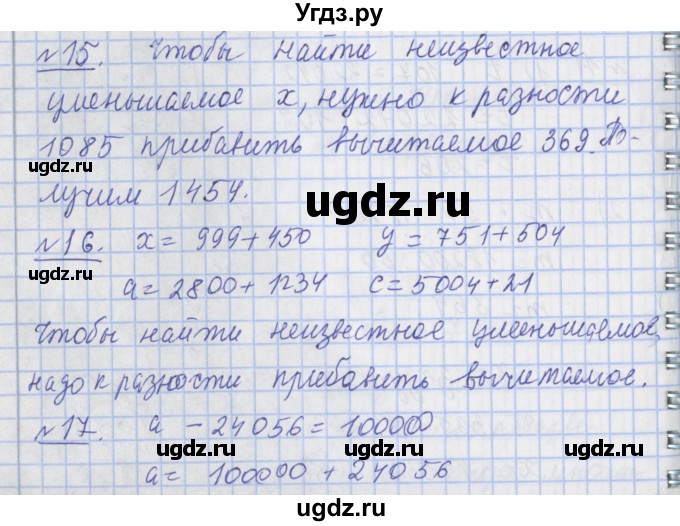 Угдз.ру
№15. Чтобы найти неизвестное
уменьшаемое x, нужно к разности
1085 прибавить вычитаемое 369. По-
ugdz.ru ugdz.ru
ugdz.ru
лучим 1454.
№16. x = 999+450 y = 751+504
ugdz.ru
a = 2800+1234 c = 5004+21
Чтобы найти неизвестное уменьшаемое,
надо к разности прибавить вычитаемое.
№17. a - 24056 = 100000
ugdz.ru ugdz.ru
a = 100000 + 24056
ugdz.ru